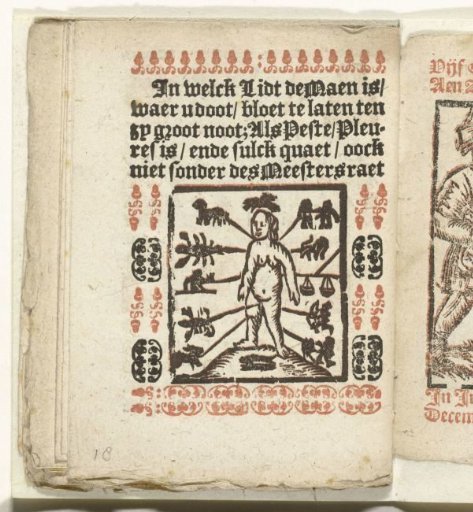 In welck Lidt de Maen is/
waer u doot/ bloet te laten ten
zy groot noot; Als Peste/ Pleu-
res is/ ende sulck quaet/ oock
niet sonder des Meesters raet
18
Vijf
Aen
In
Decem